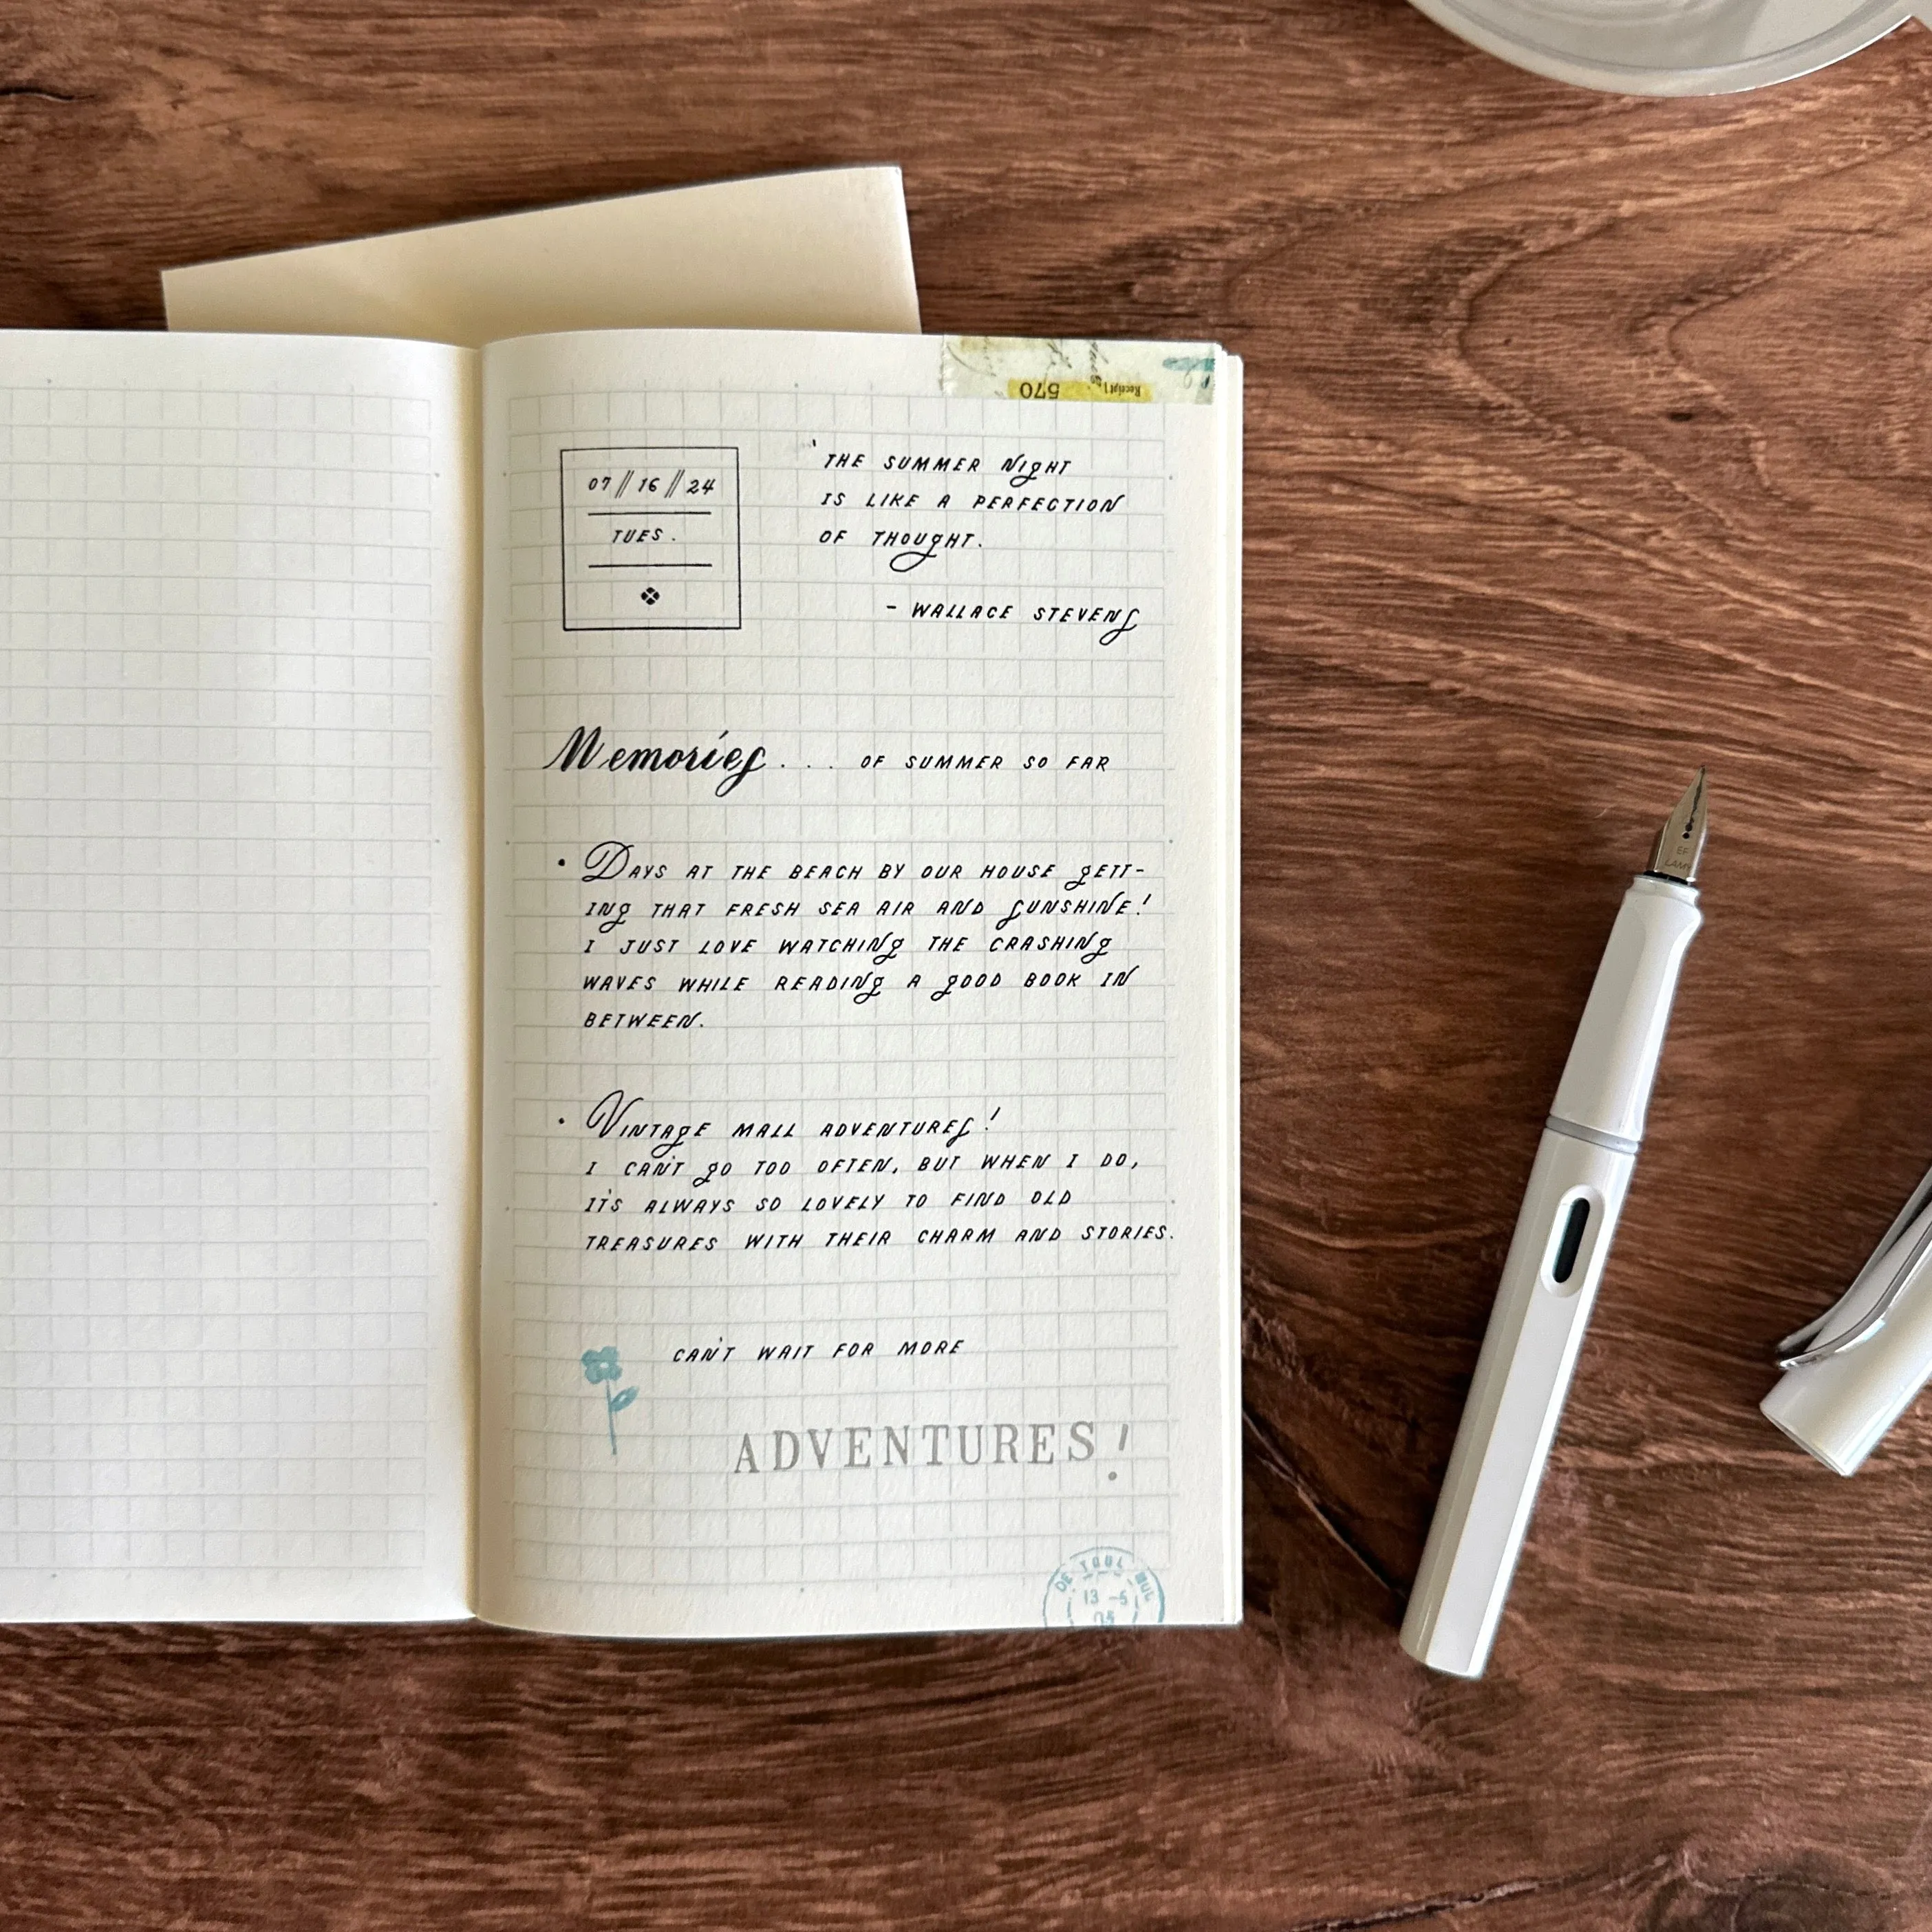 Receipt
570
07 // 16 // 24
TUES.
'THE SUMMER NIGHT
IS LIKE A PERFECTION
OF THOUGHT.
- WALLACE STEVENS
Memories... OF SUMMER SO FAR
• DAYS AT THE BEACH BY OUR HOUSE GETT-
ING THAT FRESH SEA AIR AND SUNSHINE!
I JUST LOVE WATCHING THE CRASHING
WAVES WHILE READING A GOOD BOOK IN
BETWEEN.
• VINTAGE MALL ADVENTURES!
I CAN'T GO TOO OFTEN, BUT WHEN I DO,
IT'S ALWAYS SO LOVELY TO FIND OLD
TREASURES WITH THEIR CHARM AND STORIES.
CAN'T WAIT FOR MORE
ADVENTURES!
DE TOUL
13 -5
05
EF
LAMY